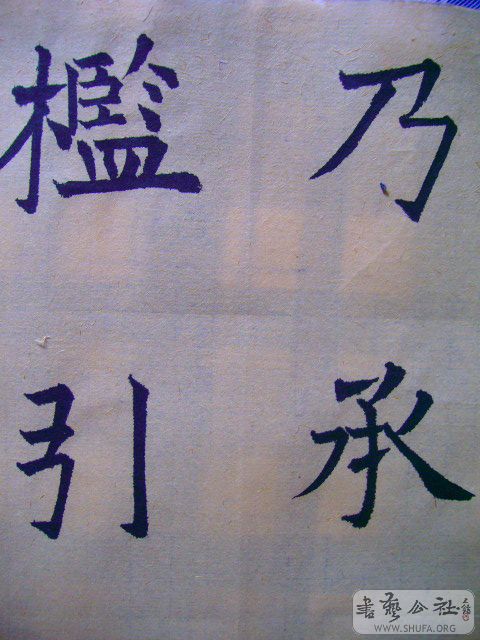 乃承
檻引
書藝公社
WWW.SHUFA.ORG